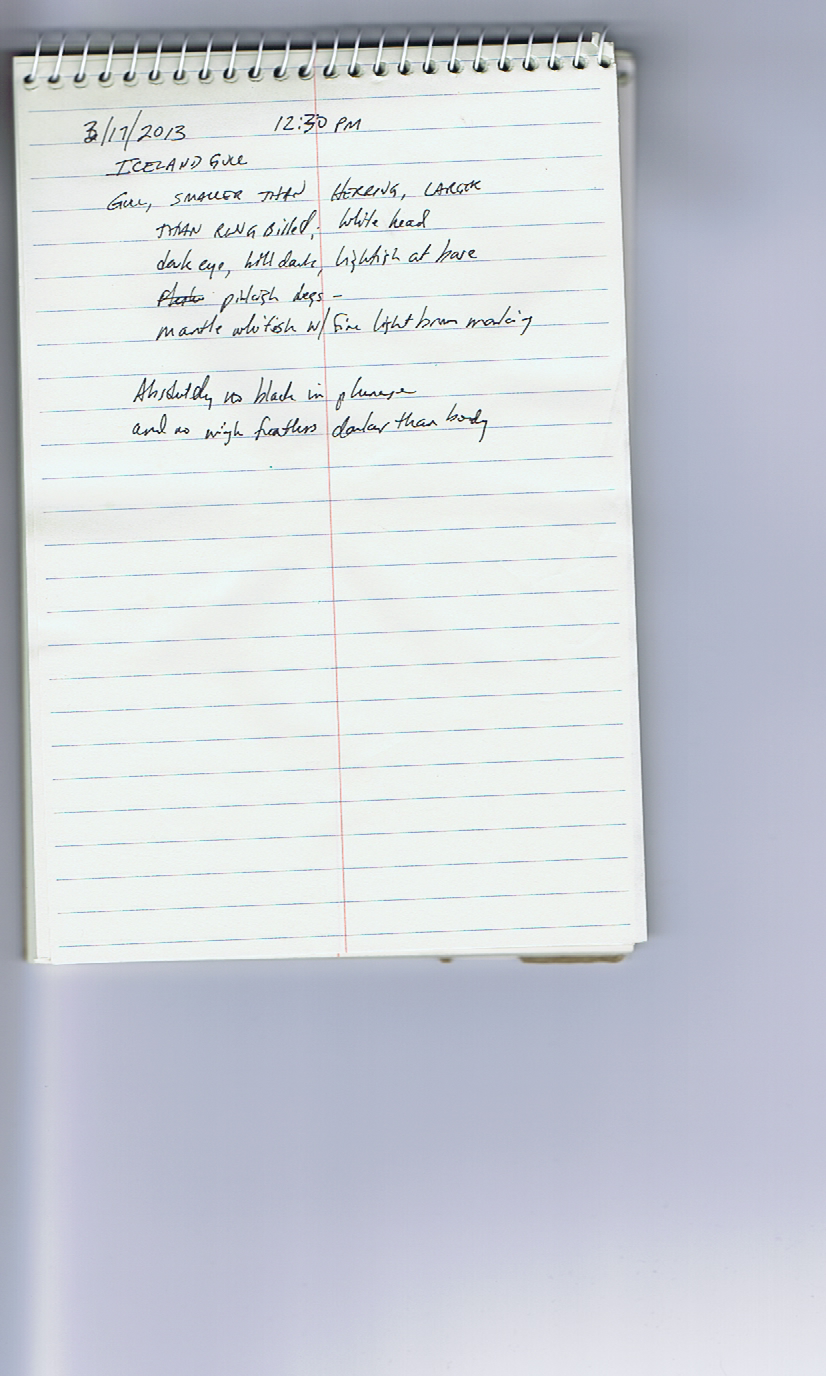 3/17/2013 12:30 PM
ICELAND GULL
GULL, SMALLER THAN HERRING, LARGER
THAN RING Billed, White head
dark eye, bill dark, lightish at base
pinkish legs -
mantle whitish w/ fine light brown marking
Absolutely no black in plumage
and no feathers darker than body